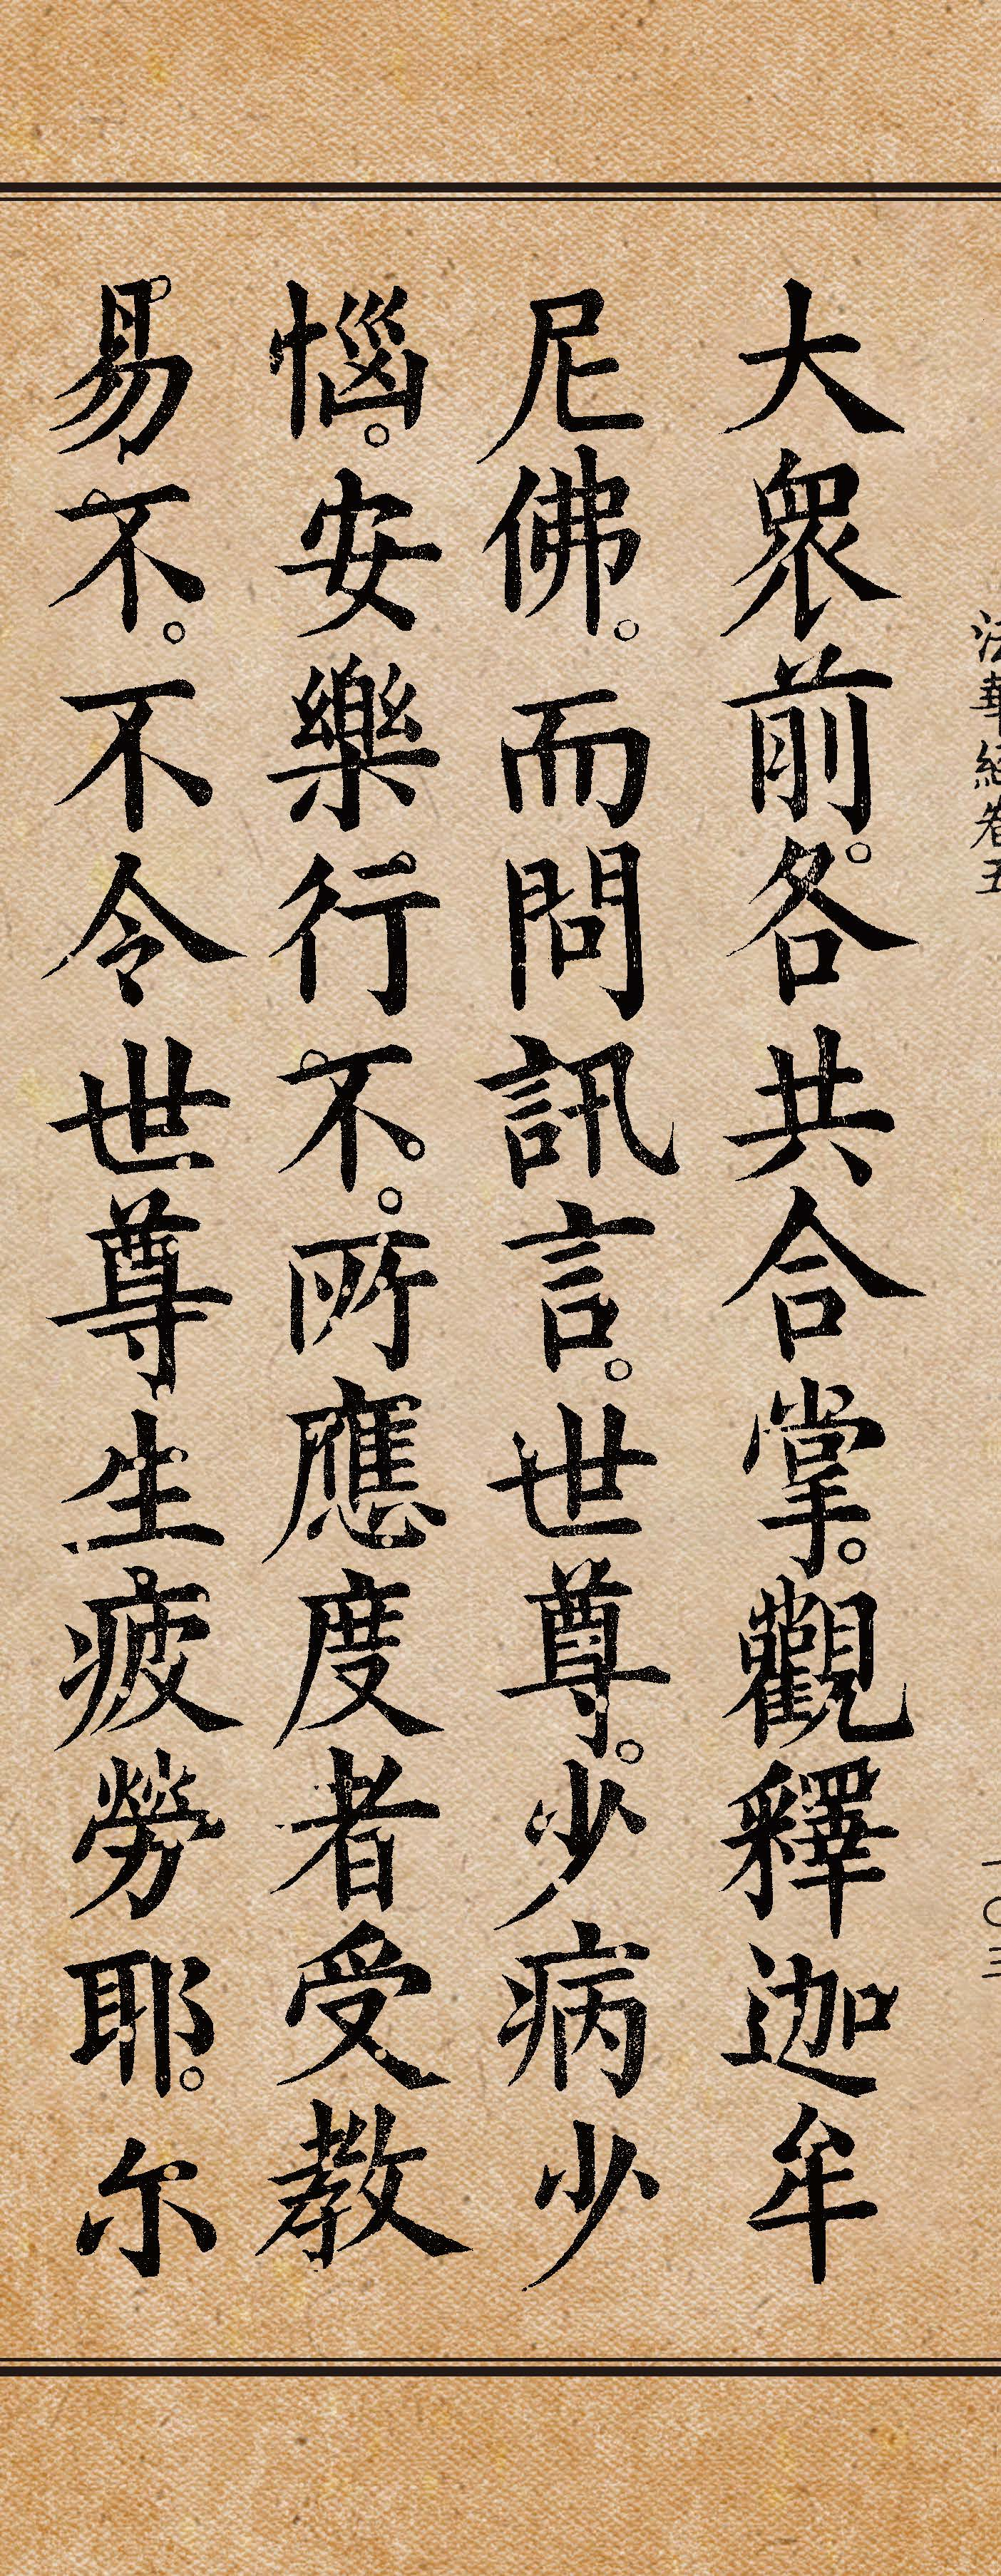 法華經卷五
一〇三
大眾前。各共合掌。觀釋迦牟
尼佛。而問訊言。世尊。少病少
惱。安樂行不。所應度者受教
易不。不令世尊生疲勞耶。尔